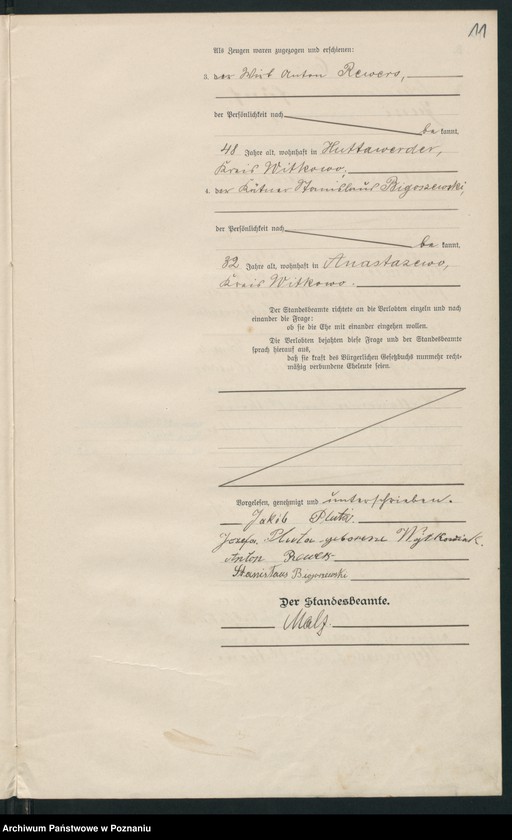 11
Als Zeugen waren zugezogen und erschienen:
3. der Wirt Anton Rewers,
der Persönlichkeit nach
be kannt,
48 Jahre alt, wohnhaft in Huttawerder,
Kreis Witkowo;
4. der Kätner Stanislaus Bigoszewski,
der Persönlichkeit nach
be kannt,
32 Jahre alt, wohnhaft in Anastazewo,
Kreis Witkowo.
Der Standesbeamte richtete an die Verlobten einzeln und nach
einander die Frage:
ob sie die Ehe mit einander eingehen wollen.
Die Verlobten bejahten diese Frage und der Standesbeamte
sprach hierauf aus,
daß sie kraft des Bürgerlichen Gesetzbuchs nunmehr recht-
mäßig verbundene Eheleute seien.
Vorgelesen, genehmigt und unterschrieben.
Jakób Pluta.
Jozefa Pluta geborene
Anton Rewers
Stanislaus Bigoszewski
Der Standesbeamte.
Archiwum Państwowe w Poznaniu